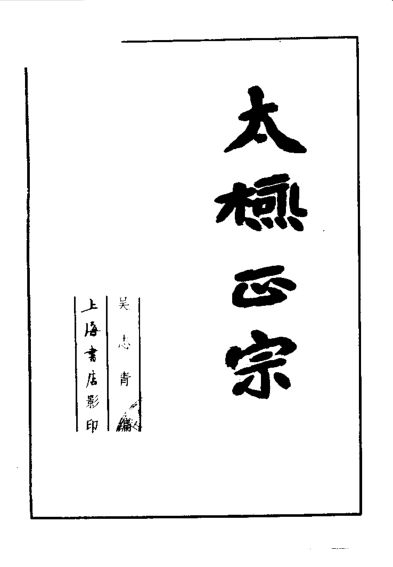 太極正宗
吳志青編
上海書店影印